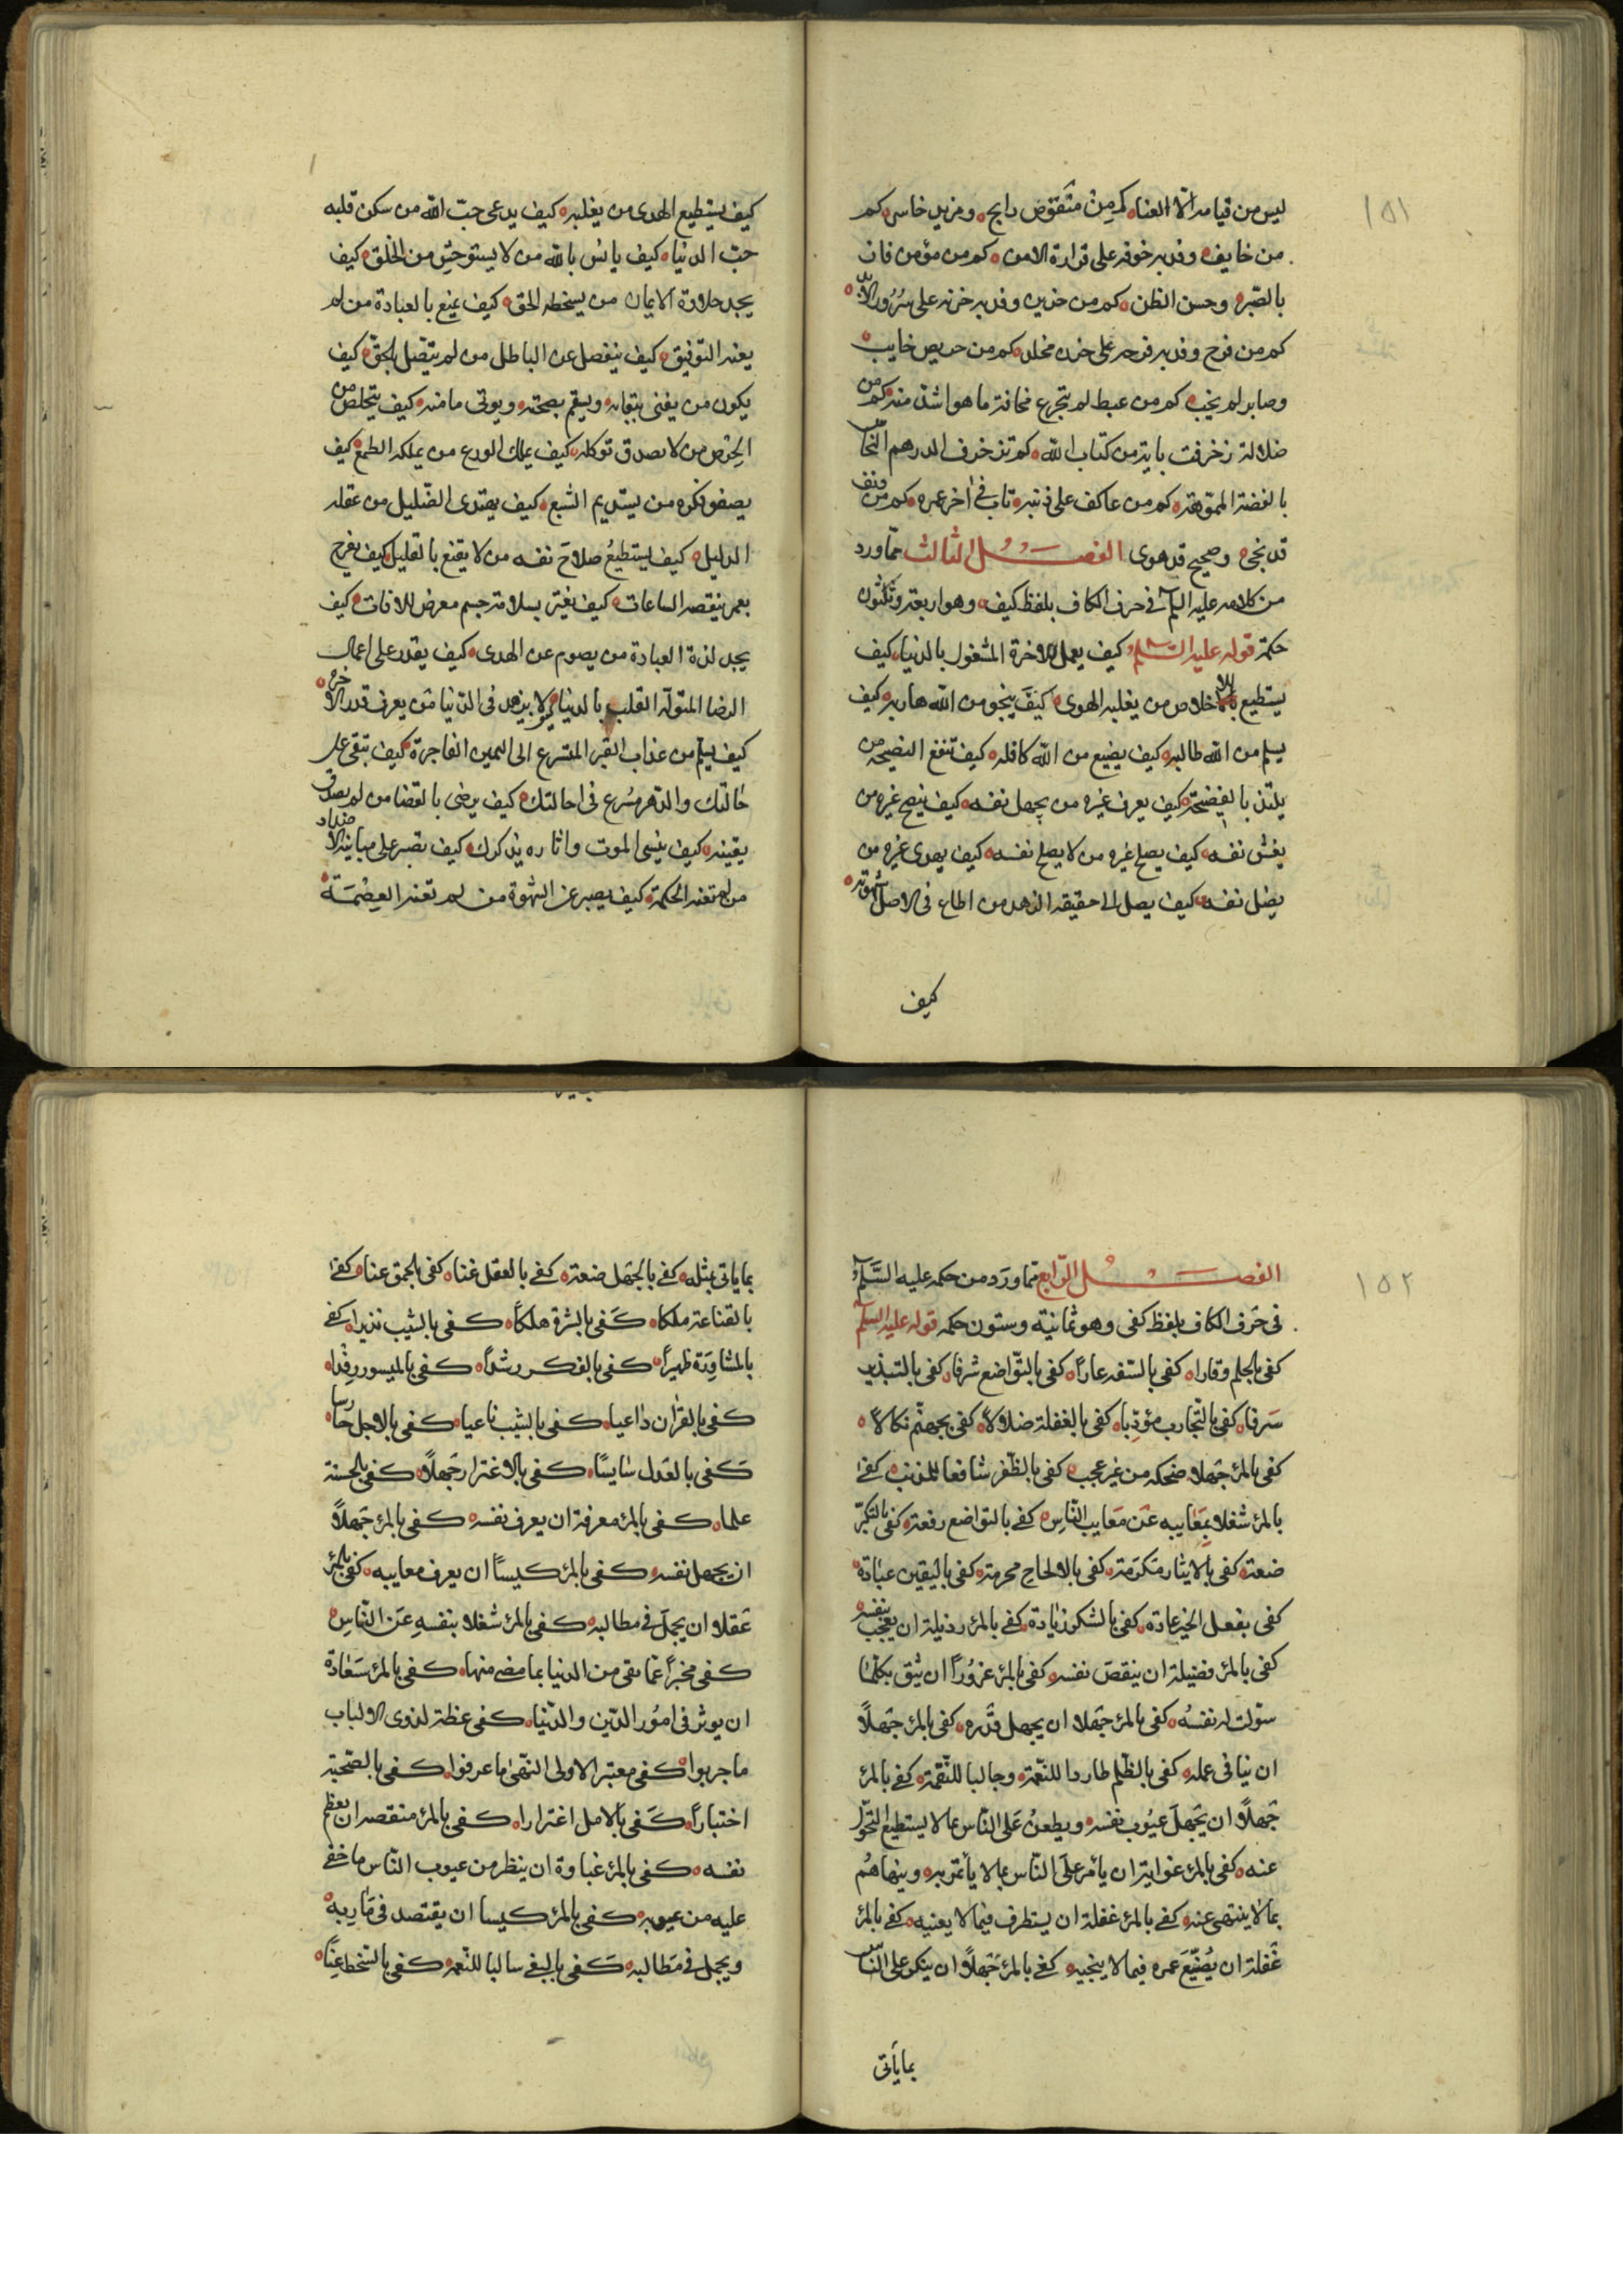 ١٥١
ليس من قيامه الا العنا كم من منقوص رابح ومزيد خاسر كم
من خايف وفد به خوفه على قرارة الامن كم من مؤمن فاز
بالصبر وحسن الظن كم من حزين وفد به حزنه على سرور الابد
كم من فرح وفد به فرحه على حزن مخلد كم من حريص خايب
وصابر لم يخب كم من غيظ لم يتجرع مخافة ما هو اشد منه كم من
ضلالة زخرفت باية من كتاب الله كم تزخرف الدرهم النحاس
بالفضة المموهة كم من عاكف على ذنبه تاب في اخر عمره كم من دنف
قد نجى وصحيح قد هوى الفصل الثالث مما ورد
من كلامه عليه السلم في حرف الكاف بلفظ كيف وهو اربعة وثلثون
حكمة قوله عليه السلم كيف يعمل للاخرة المشغول بالدنيا كيف
يستطيع الاخلاص من يغلبه الهوى كيف ينجو من الله هاربه كيف
يسلم من الله طالبه كيف يضيع من الله كافله كيف تنفع النصيحة من
يلتذ بالفضيحة كيف يعرف غيره من يجهل نفسه كيف ينصح غيره من
يغش نفسه كيف يصلح غيره من لا يصلح نفسه كيف يهدى غيره من
يضل نفسه كيف يصل الى حقيقة الزهد من اطاع فى الاصل شهوته
كيف
كيف يستطيع الهدى من يغلبه كيف يدعى حب الله من سكن قلبه
حب الدنيا كيف يانس بالله من لا يستوحش من الخلق كيف
يجد حلاوة الايمان من يسخطه الحق كيف يتمتع بالعبادة من لم
يعنه التوفيق كيف ينفصل عن الباطل من لم يتصل بالحق كيف
يكون من يفنى ببقايه ويسقم بصحته ويوتى مامنه كيف يتخلص من
الحرص من لا يصدق توكله كيف يملك الورع من يملكه الطمع كيف
يصفو فكره من يستديم الشبع كيف يهتدى الضليل من غفله
الدليل كيف يستطيع صلاح نفسه من لا يقنع بالقليل كيف يفرح
بعمر ينقصه الساعات كيف يغتر بسلامة جسم معرض للافات كيف
يجد لذة العبادة من يصوم عن الهدى كيف يقدر على اعمال
الرضا المتوله القلب بالدنيا لا يزهد فى الدنيا من يعرف قدر الاخرة
كيف يسلم من عذاب القبر المتسرع الى اليمين الفاجرة كيف تبقى على
حالتك والدهر مسرع فى احالتك كيف يرضى بالقضا من لم يصدق
يقينه كيف ينسى الموت واثاره يذكرك كيف تصبر على مباينة الاضداد
من لم تعنه الحكمة كيف يصبر عن الشهوة من لم تعنه العصمة
١٥٢
الفصل الرابع مما ورد من حكمه عليه السلم
فى حرف الكاف بلفظ كفى وهو ثمانية وستون حكمه قوله عليه السلم
كفى بالحلم وقارا كفى بالسفه عارا كفى بالتواضع شرفا كفى بالتبذير
سرفا كفى بالتجارب مؤدبا كفى بالغفلة ضلالا كفى بجهنم نكالا
كفى بالمرء جهلا ضحكه من غير عجب كفى بالظفر شافعا للمذنب كفى
بالمرء شغلا بمعايبه عن معايب الناس كفى بالتواضع رفعة كفى بالتكبر
ضعة كفى بالايثار مكرمة كفى بالالحاح محرمة كفى باليقين عبادة
كفى بفعل الخير عادة كفى بالشكر زيادة كفى بالمرء رذيلة ان يعجب بنفسه
كفى بالمرء فضيلة ان ينقص نفسه كفى بالمرء غرورا ان يثق بكلما
سولت له نفسه كفى بالمرء جهلا ان يجهل قدره كفى بالمرء جهلا
ان ينافى عمله كفى بالظلم طاردا للنعمة وجالبا للنقمة كفى بالمرء
جهلا ان يجهل عيوب نفسه ويطعن على الناس بما لا يستطيع التحول
عنه كفى بالمرء غواية ان يأمر على الناس بما لا يأتمر به وينهاهم
بما لا ينتهى عنه كفى بالمرء غفلة ان يستطرف فيما لا يعنيه كفى بالمرء
غفلة ان يضيع عمره فيما لا ينجيه كفى بالمرء جهلا ان ينكر على الناس
بما يأتى
بما ياتى بمثله كفى بالجهل ضعة كفى بالعقل غنا كفى بالحمق عنا كفى
بالقناعة ملكا كفى بالشره هلكا كفى بالشيب نذيرا كفى
بالمشاورة ظهيرا كفى بالفكر رشدا كفى بالميسور رفدا
كفى بالقران داعيا كفى بالشيب ناعيا كفى بالاجل حارسا
كفى بالعدل سايسا كفى بالاغترار جهلا كفى بالحسنة
علما كفى بالمرء معرفة ان يعرف نفسه كفى بالمرء جهلا
ان يجهل نفسه كفى بالمرء كيسا ان يعرف معايبه كفى بالمرء
عقلا ان يجمل فى مطالبه كفى بالمرء شغلا بنفسه عن الناس
كفى مخبرا عما بقى من الدنيا بما مضى منها كفى بالمرء سعادة
ان يوثر فى امور الدين والدنيا كفى عظة لذوى الالباب
ما جربوا كفى معتبرا لاولى النهى ما عرفوا كفى بالصحبة
اختبارا كفى بالامل اغترارا كفى بالمرء منقصه ان يعظم
نفسه كفى بالمرء غباوة ان ينظر من عيوب الناس ما خفى
عليه من عيوبه كفى بالمرء كيسا ان يقتصد فى ماربه
ويجمل فى مطالبه كفى بالبغى سالبا للنعمه كفى بالسخط عنا